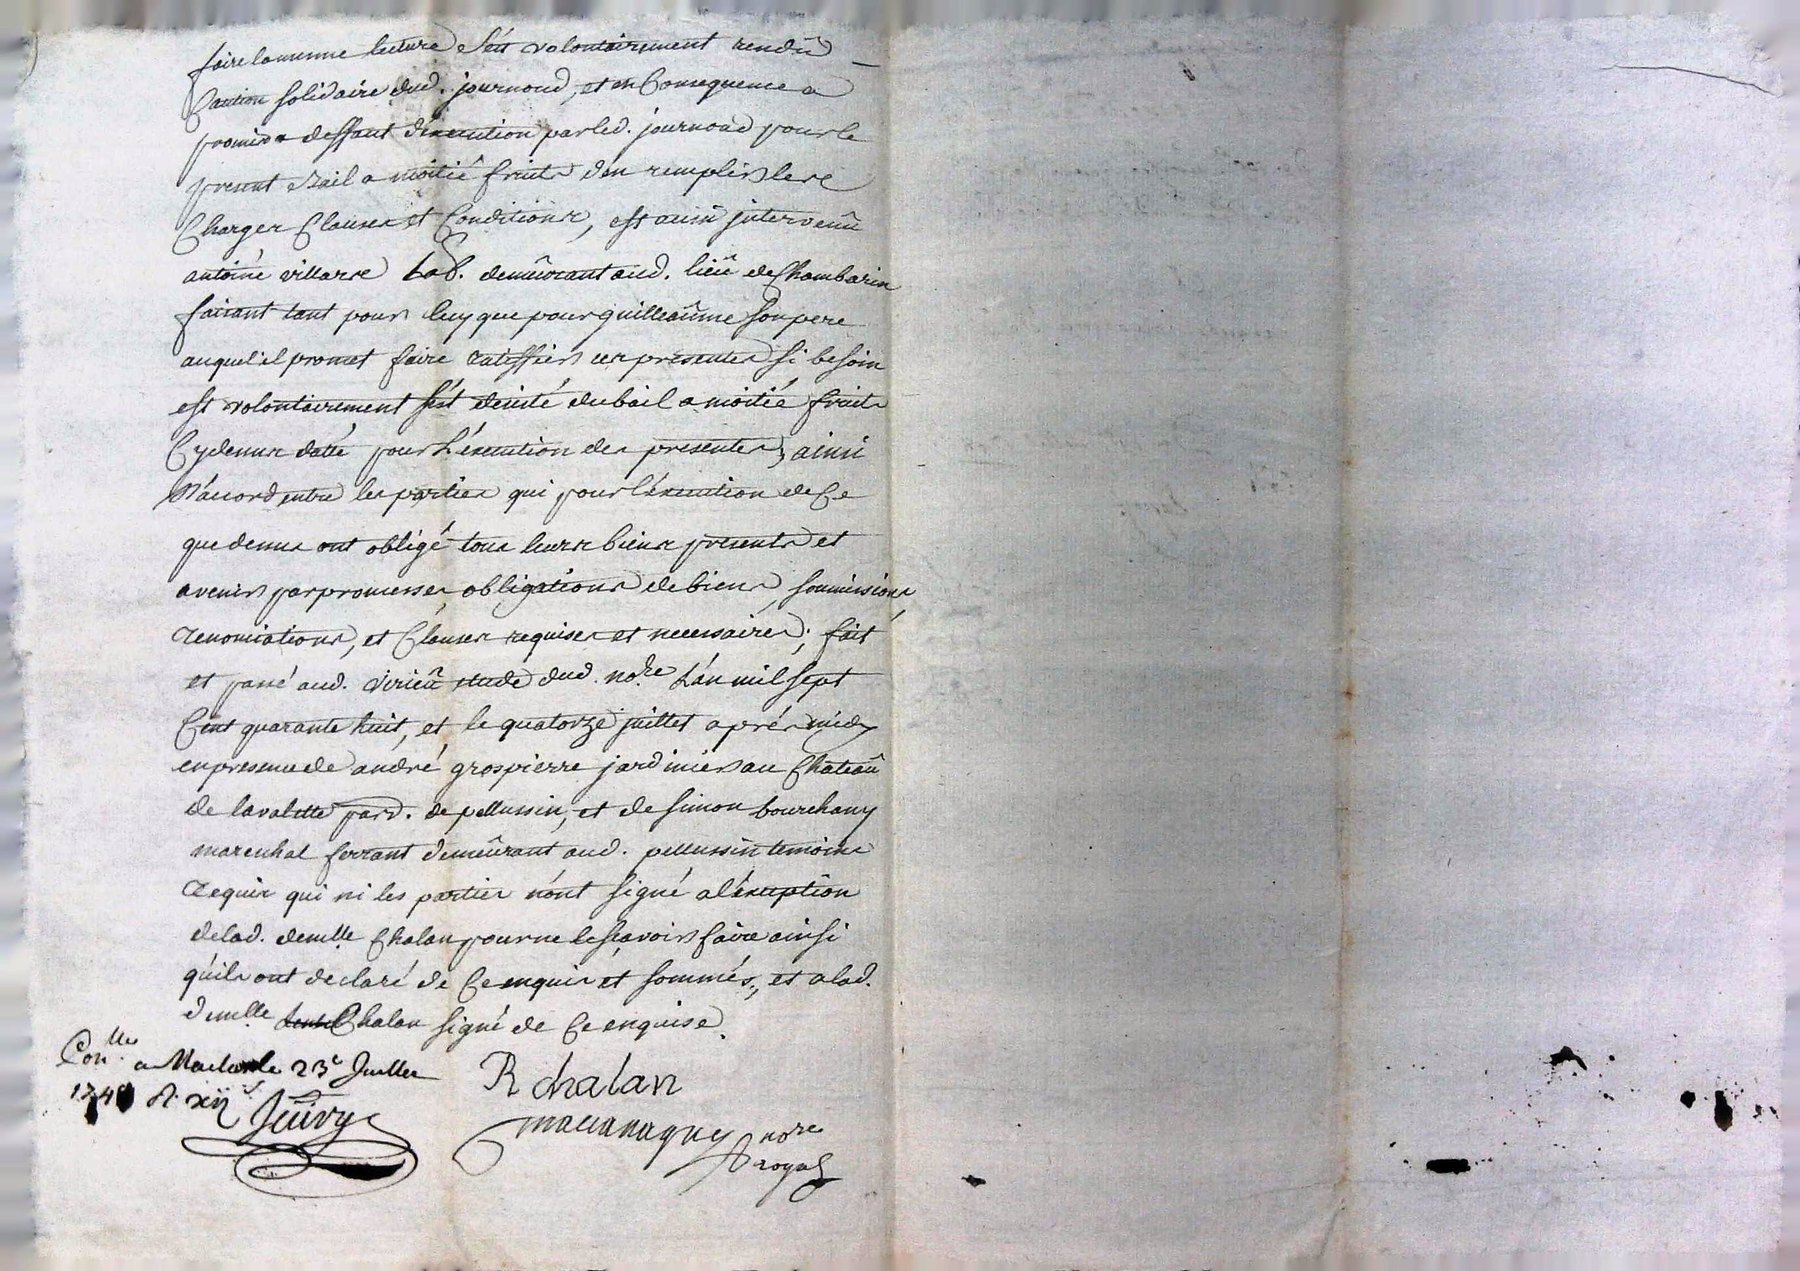 faire la mesme lecture s'est volontairement rendû
Caution solidaire dud. journoud, et en Consequence a
promis a deffaut d'execution par led. journoud pour le
present Bail a moitié fruits d'en remplir les
Charges Clauses et Conditions, est aussi intervenû
antoine villarse Lab. demeûrant aud. lieû de Chambarin
faisant tant pour luy que pour guilleaûme son pere
auquel il promet faire ratiffier ces presentes si besoin
est volontairement s'ést désisté du bail a moitié fruits
Cydessus datté pour L'éxecution des presentes, ainsi
D'áccord entre les parties qui pour l'éxecution de Ce
que dessus ont obligé tous leurs biens presents et
avenir par promesses obligations de biens, soumissions
renonciations, et Clauses requises et necessaires; fait
et passé aud. virieû etude dud. no.re L'án mil sept
Cent quarante huit, et le quatorze juillet aprés midy
en presence de andré grospierre jardinier au Chateâu
de lavalette parr. de pellussin, et de simon bourchany
mareschal ferrant demeûrant aud. pellussin temoins
requis qui ni les parties n'ónt signé a l'éxception
de lad. demlle Chalan pour ne le sçavoir faire ainsi
qu'ils ont déclaré de Ce enquis et sommés, et a lad.
demlle Chalan signé de Ce enquise.
Con.lle a Maclas le 23e Juillet
1748 R. xij s
R chalan
nore
royal